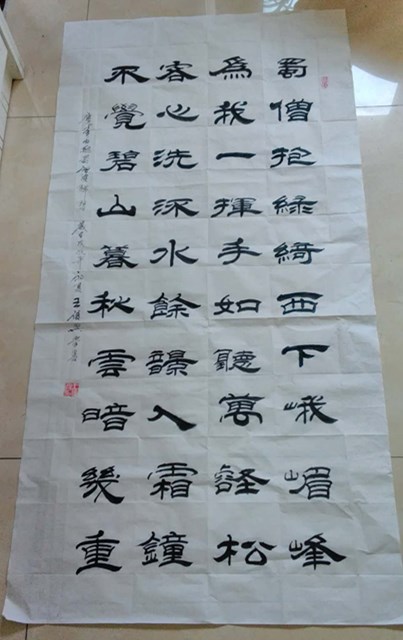 蜀僧抱綠綺西下峨嵋峰
爲我一揮手如聽萬壑松
客心洗流水餘韻入霜鐘
不覺碧山暮秋雲暗幾重